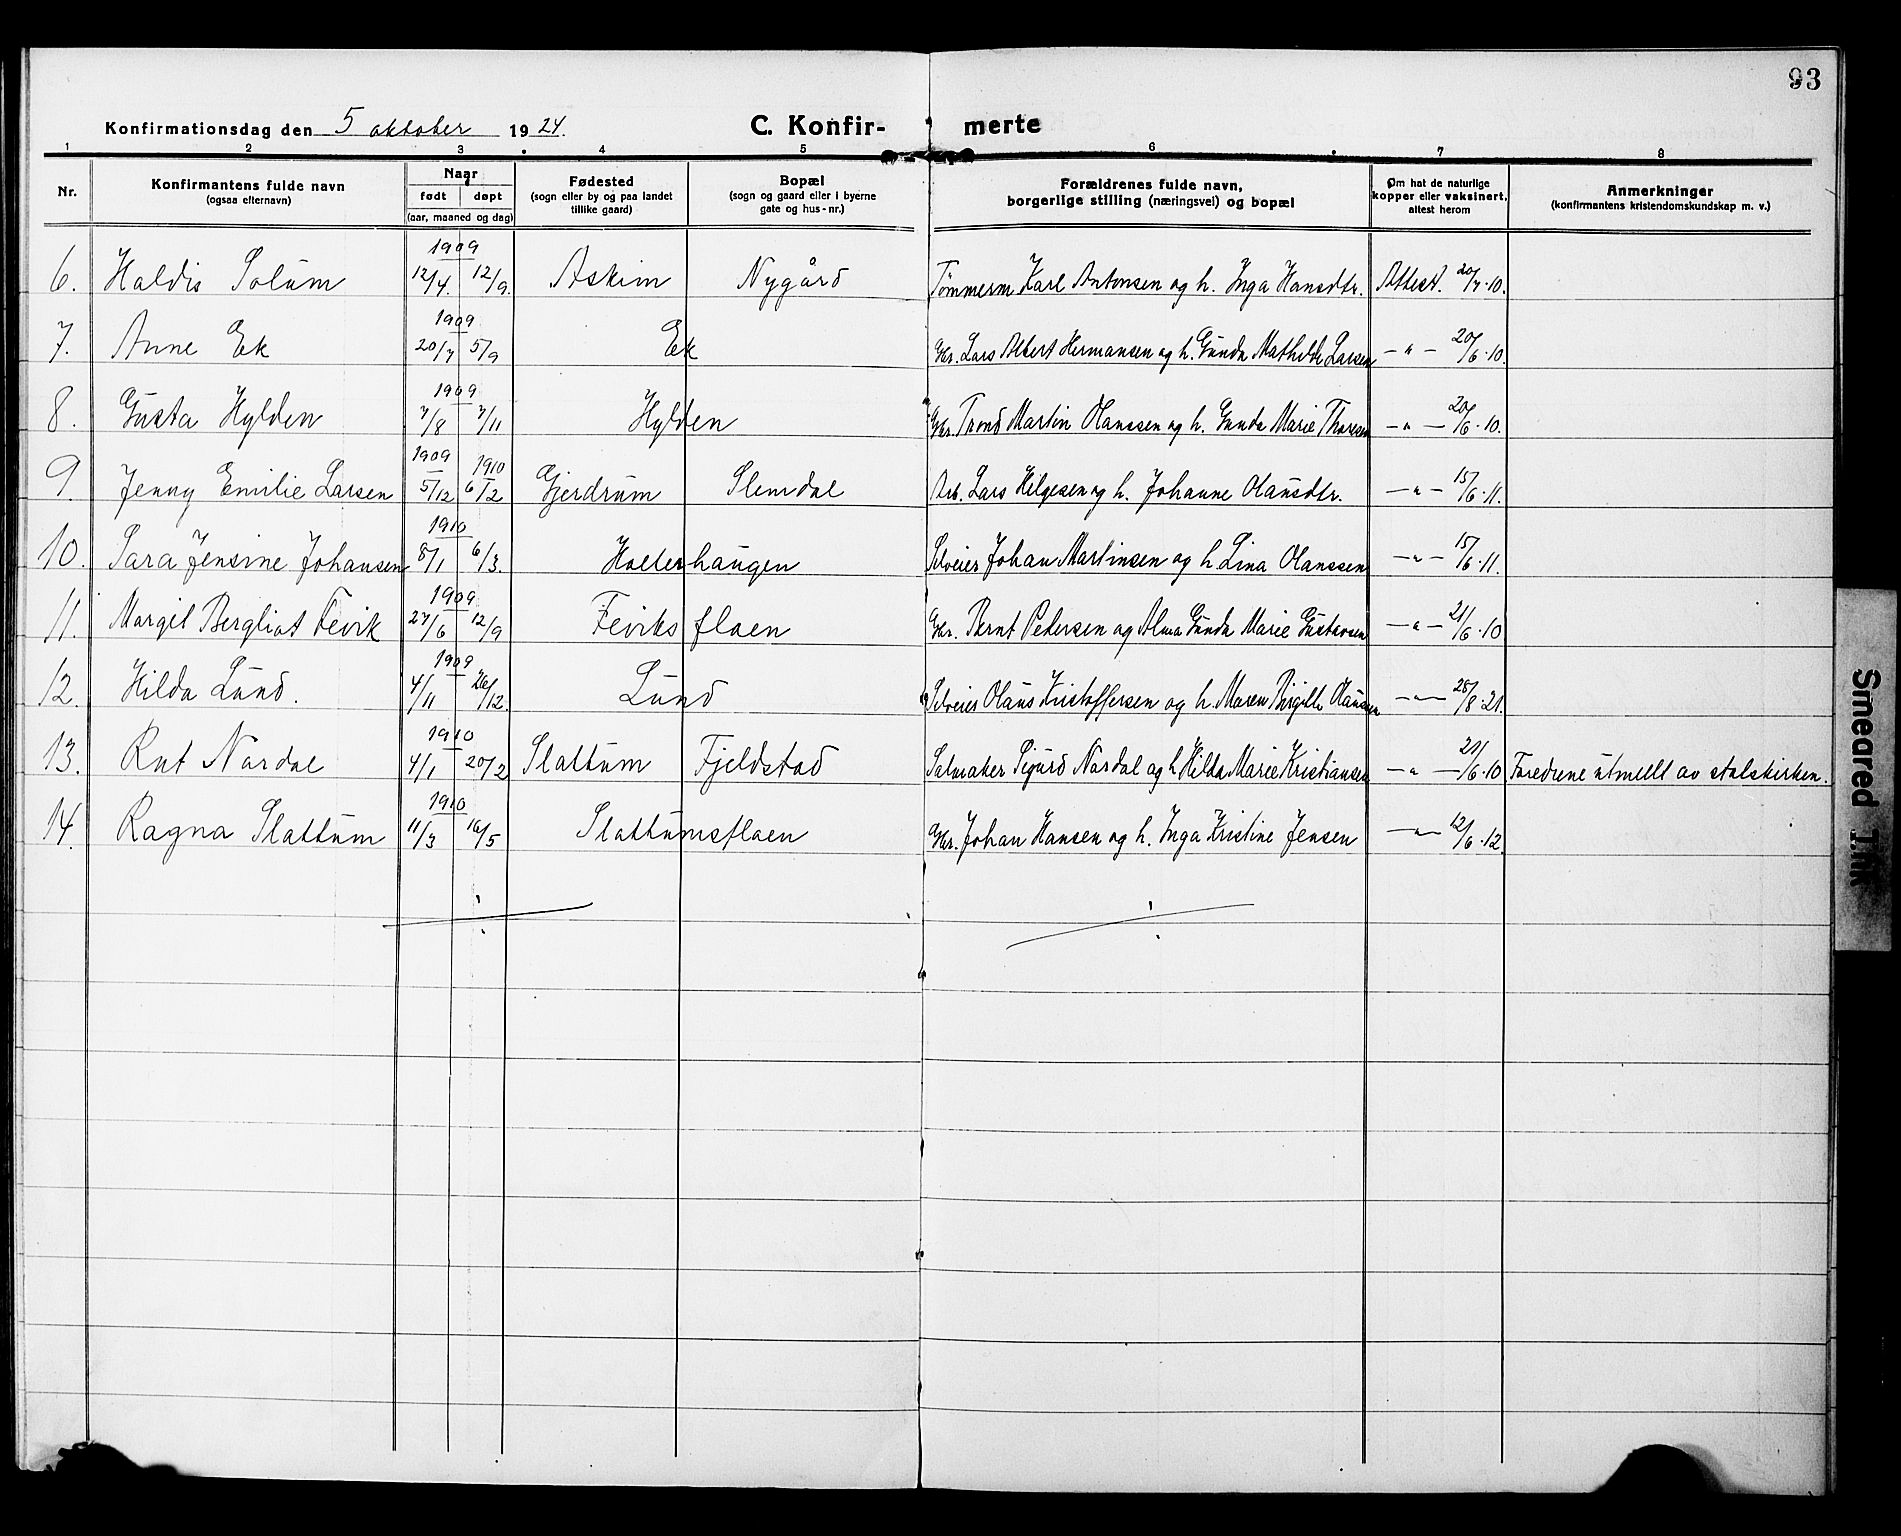 93
Konfirmationsdag den 5 oktober 1924.
C. Konfir- merte
1 2 3 4 5 6 7 8
Nr.
Konfirmantens fulde navn
(ogsaa efternavn)
Naar
født døpt
(aar, maaned og dag)
Fødested
(sogn eller by og paa landet
tillike gaard)
Bopæl
(sogn og gaard eller i byerne
gate og hus-nr.)
Forældrenes fulde navn,
borgerlige stilling (næringsvei) og bopæl
Om hat de naturlige
kopper eller vaksinert,
attest herom
Anmerkninger
(konfirmantens kristendomskundskap m. v.)
1909
6. Haldis Solum 12/4. 12/9. Askim Nygård Tømmerm Karl Antonsen og h. Inga Hansdtr. Attest. 20/7.10.
1909
7. Anne Ek 20/7 5/9 Ek Gbr. Lars Albert Hermansen og h. Gunda Mathilde Larsen — " — 20/6.10.
1909
8. Gusta Hylden 7/8 7/11 Hylden Gbr. Trond Martin Olaussen og h. Gunda Marie Thoresen — " — 20/6.10.
1909 1910
9. Jenny Emilie Larsen 5/12 6/2 Gjerdrum Slemdal Arb. Lars Helgesen og h. Johanne Olausdtr. — " — 15/6.11.
1910
10. Sara Jensine Johansen 8/1 6/3. Holterhaugen Selveier Johan Martinsen og h. Lina Olaussen — " — 15/6.11.
1909
11. Margit Bergliot Fevik 27/6 12/9 Feviksflaen Gbr. Bernt Pedersen og Alma Gunda Marie Gustavsen — " — 21/6.10
1909
12. Hilda Lund. 4/11 26/12. Lund Selveier Olaus Kristoffersen og h. Maren Birgitte Olaussen — " — 28/8.21.
1910
13. Rut Nordal 4/1 20/2 Slattum Fjeldstad Salmaker Sigurd Nordal og h. Hilda Marie Kristiansen — " — 21/6.10 Foredrene utmeldt av statskirken.
1910
14. Ragna Slattum 11/3 16/5 Slattumsflaen Gbr. Johan Hansen og h. Inga Kristine Jensen — " — 12/6.12.
Smeared Ink